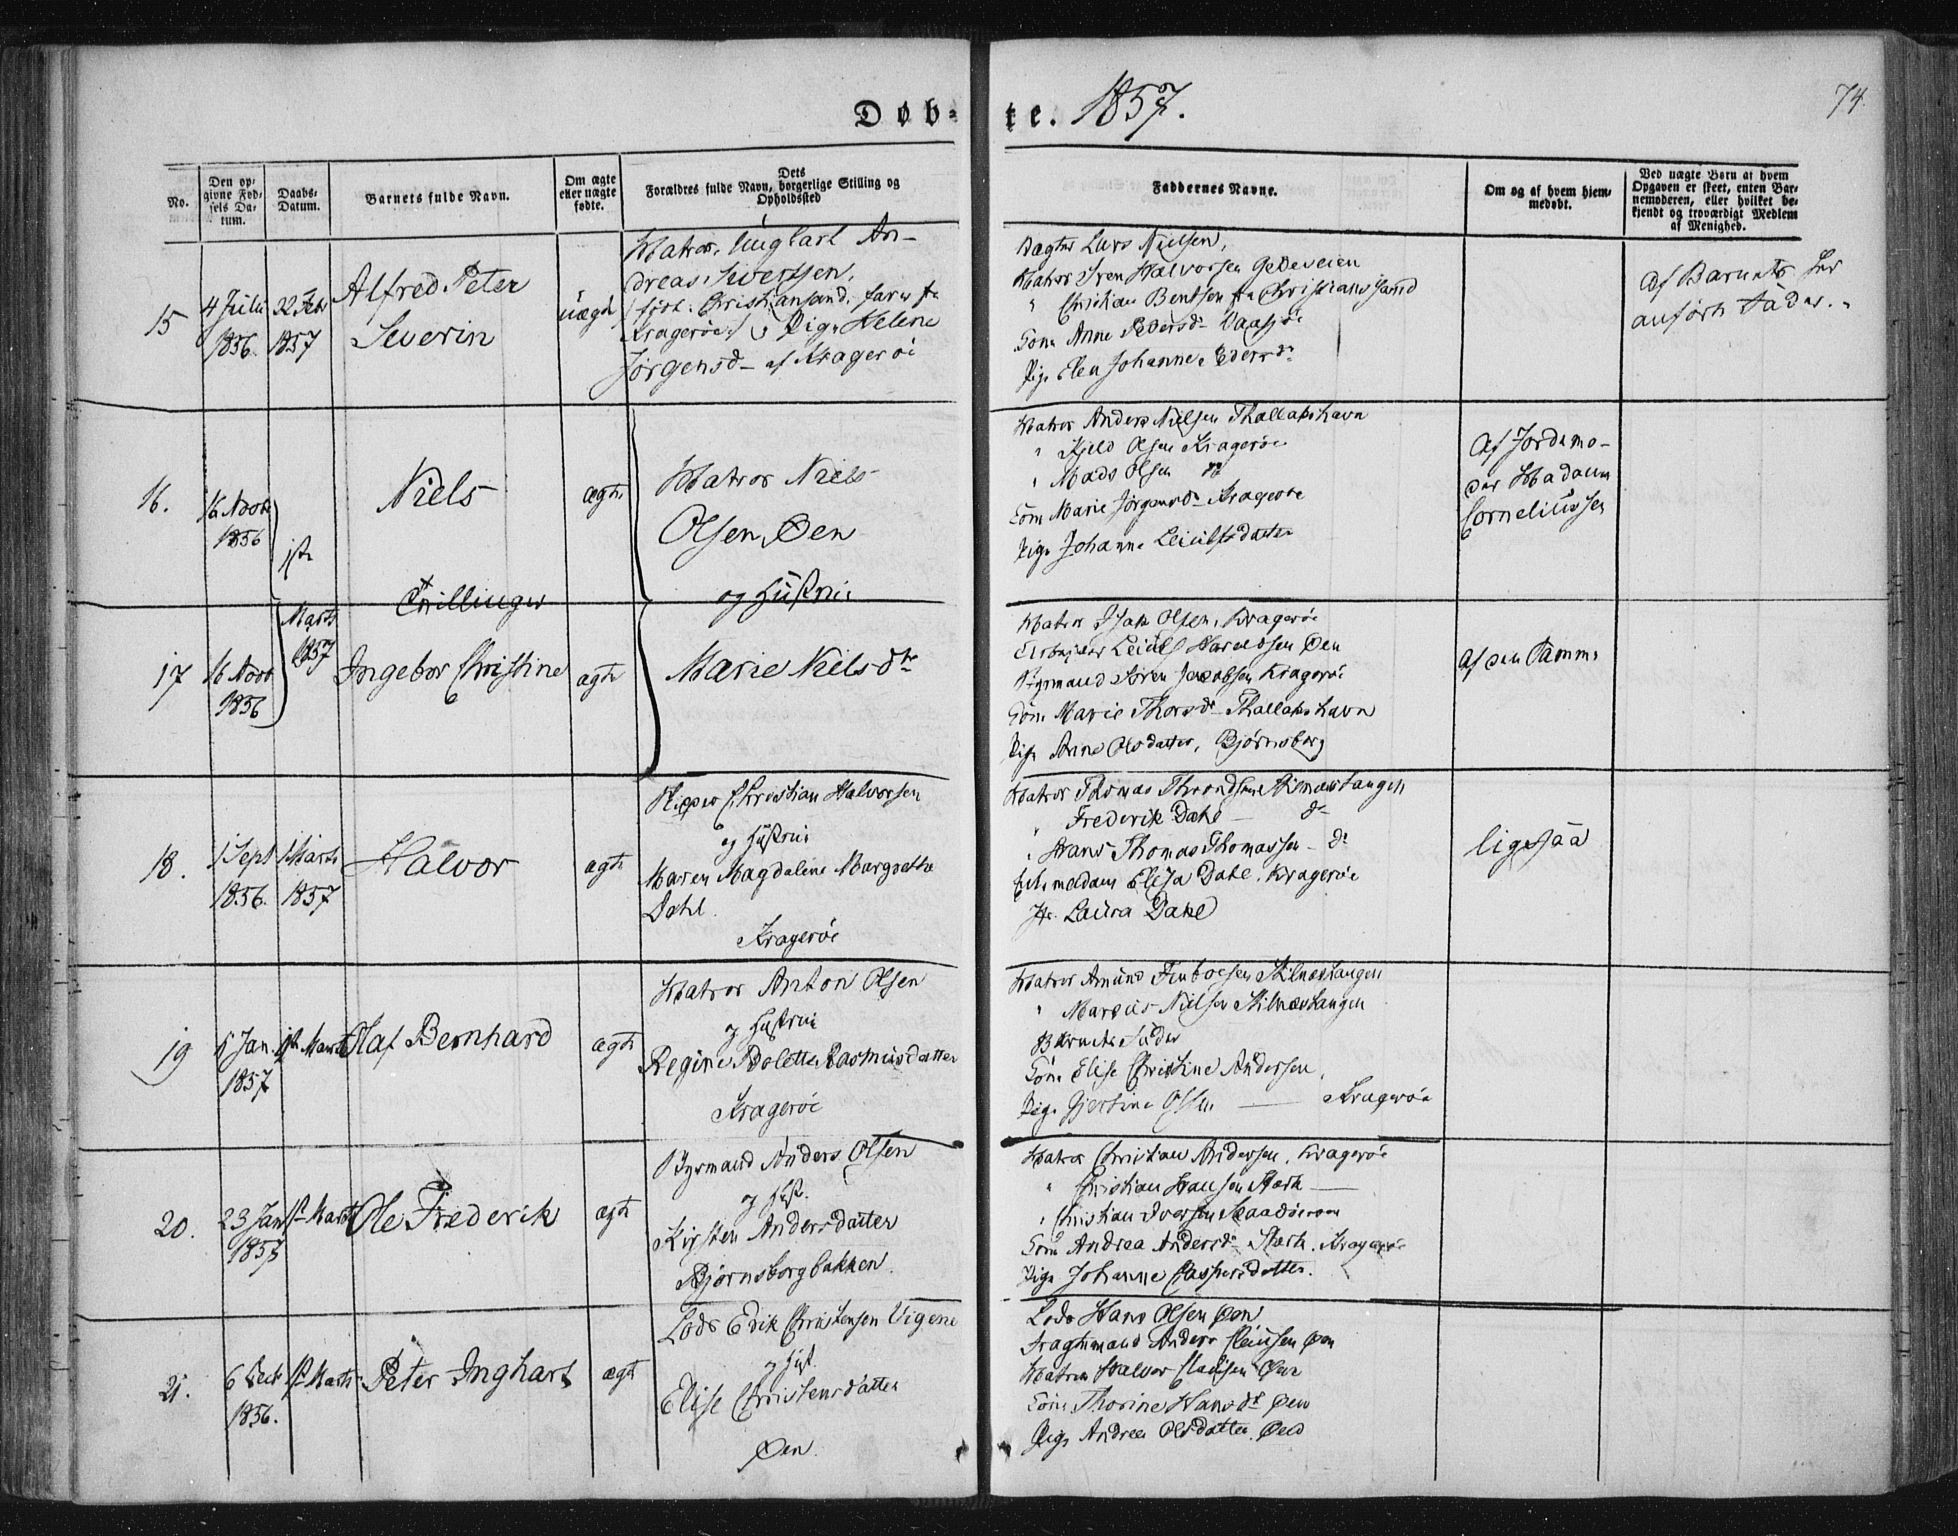 Døb-
te. 1857.
74.
No.
Den op-
givne Fød-
sels Da-
tum.
Daabs-
Datum.
Barnets fulde Navn.
Om ægte
eller uægte
fødte.
Dets
Forældres fulde Navn, borgerlige Stilling og
Opholdssted
Faddernes Navne.
Om og af hvem hjem-
medøbt.
Ved uægte Børn af hvem
Opgaven er skeet, enten Bar-
nemoderen, eller hvilket be-
kjendt og troværdigt Medlem
af Menighed.
15
4 Juli
1856.
22 Febr
1857
Alfred Peter
Severin
uægte
Matros, Ungkarl An-
dreas Sivertsen,
Kragerøe) og Pige Helene
Jørgensd- af Kragerøe
Lars Nielsen,
Matros Sven Halvorsen Gedeveien
" Christian Bentsen fra Christianssand
Anne Pedersd-
Pige Elen Johanne Pedersdr
af Barnets her
anførte Fader.
16.
16 Novb
1856
1ste
Niels
ægte
Matros Niels
Olsen, Øen
og Hustrue
Matros Anders Nielsen Thallakshavn
" Kjeld Olsen Kragerøe
" Mads Olsen do
Marie Jørgensdr Kragerøe
Pige Johanne Leiulfsdatter
Af Jordemo-
der Madam
Corneliussen
Tvillinger
17
16 Novb
1856
Marts
1857
Ingebor Christine
ægte
Marie Nielsdtr
Matros Isak Olsen, Kragerøe
Arbeider Leiulf Haraldsen Øen
Styrmand Søren Jacobsen Kragerøe
Marie Thorsdr Thallakshavn
Pige Anne Olsdatter, Bjørnsborg
af den samme
18.
1 Sept
1856.
1 Marts
1857
Halvor
ægte
Skipper Christian Halvorsen
og Hustrue
Maren Magdaline Margrethe
Dahl.
Kragerøe
Matros Thomas Throndsen Stilnæstangen
" Frederik Dahl — do
" Hans Thomas Thomassen - do
Elisa Dahl. Kragerøe
Jfr. Laura Dahl
ligesaa
19
5 Jan.
1857
1ste Marts
Olaf Bernhard
ægte
Matros Anton Olsen
og Hustrue
Regine Bolette Rasmusdatter
Kragerøe
Matros Amund Stilnæstangen
" Marcus Nielsen Stilnæstangen
Barnets Fader
Elise Christine Andersen,
Pige Gjertine Olsen — Kragerøe
20.
23 Jan
1857
1st Marts
Ole Frederik
ægte
Styrmand Anders Olsen
og Hust.
Kirsten Andersdatter
Bjørnsborgbakken.
Matros Christian Andersen, Kragerøe
" Christian Hansen Stærk —
" Christian Iversen
Andrea Andersdr Stærk. Kragerøe
Pige Johanne Caspersdatter.
21.
6 Decb
1856.
1st Marts
Peter Inghart
ægte
Lods Edik Christensen Vigene
og Hust.
Elise Christensdatter
Øen.
Lods Hans Olsen Øen
Fragtmand Anders Clausen Øen
Matros Halvor Clausen Øen
Thorine Hansdr Øen
Pige Andrea Olsdatter. Øen